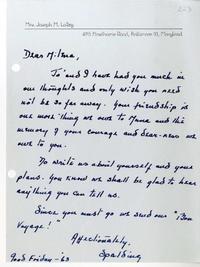 Mrs. Joseph M. Lalley
Baltimore 31, Maryland
Dear Milma,
Ta' and I have had you much in
our thoughts and only wish you need
not be so far away. Your friendship is
one more thing we owe to Mama and the
memory of your courage and dear-ness we
owe to you.
Do write us about yourself and your
plans. You know we shall be glad to hear
anything you can tell us.
Since you must go we send our "¡Bon
Voyage!"
Affectionately,
Good Friday - '63 Spalding